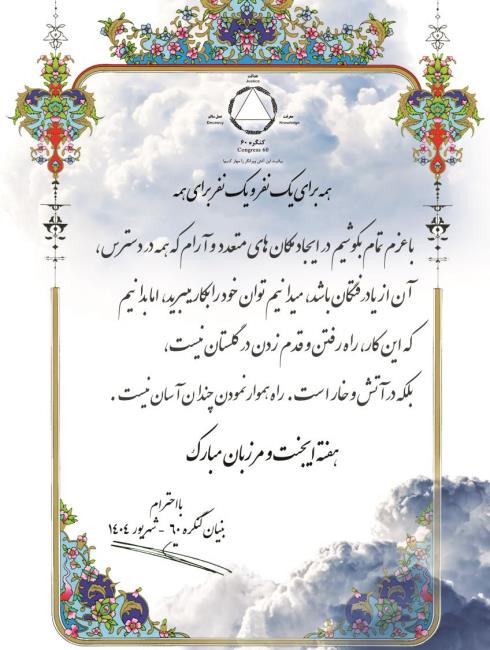 عدالت
Justice
عمل سالم
Decency
معرفت
Knowledge
کنگره ۶۰
Congress 60
بیائید این آتش ویرانگر را مهار کنیم!
همه برای یک نفر و یک نفر برای همه
با عزم تمام بکوشیم در ایجاد مکان های متعدد و آرام که همه در دسترس،
آن از یاد رفتگان باشد، میدانیم توان خود را بکار میبرید، اما بدانیم
که این کار، راه رفتن و قدم زدن در گلستان نیست،
بلکه در آتش و خار است. راه هموار نمودن چندان آسان نیست.
هفته ایجنت و مرزبان مبارک
بااحترام
بنیان کنگره ۶۰ - شهریور ۱۴۰۴